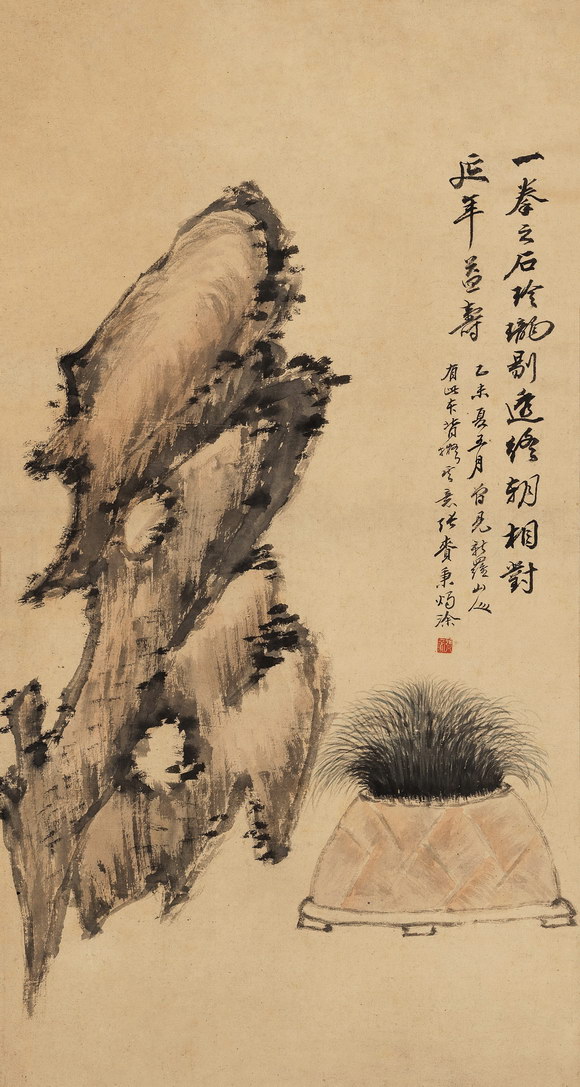 一拳之石玲瓏剔透終朝相對
延年益壽
乙未夏五月曾見新羅山人
有此本背擬其意张賡秉燭涂